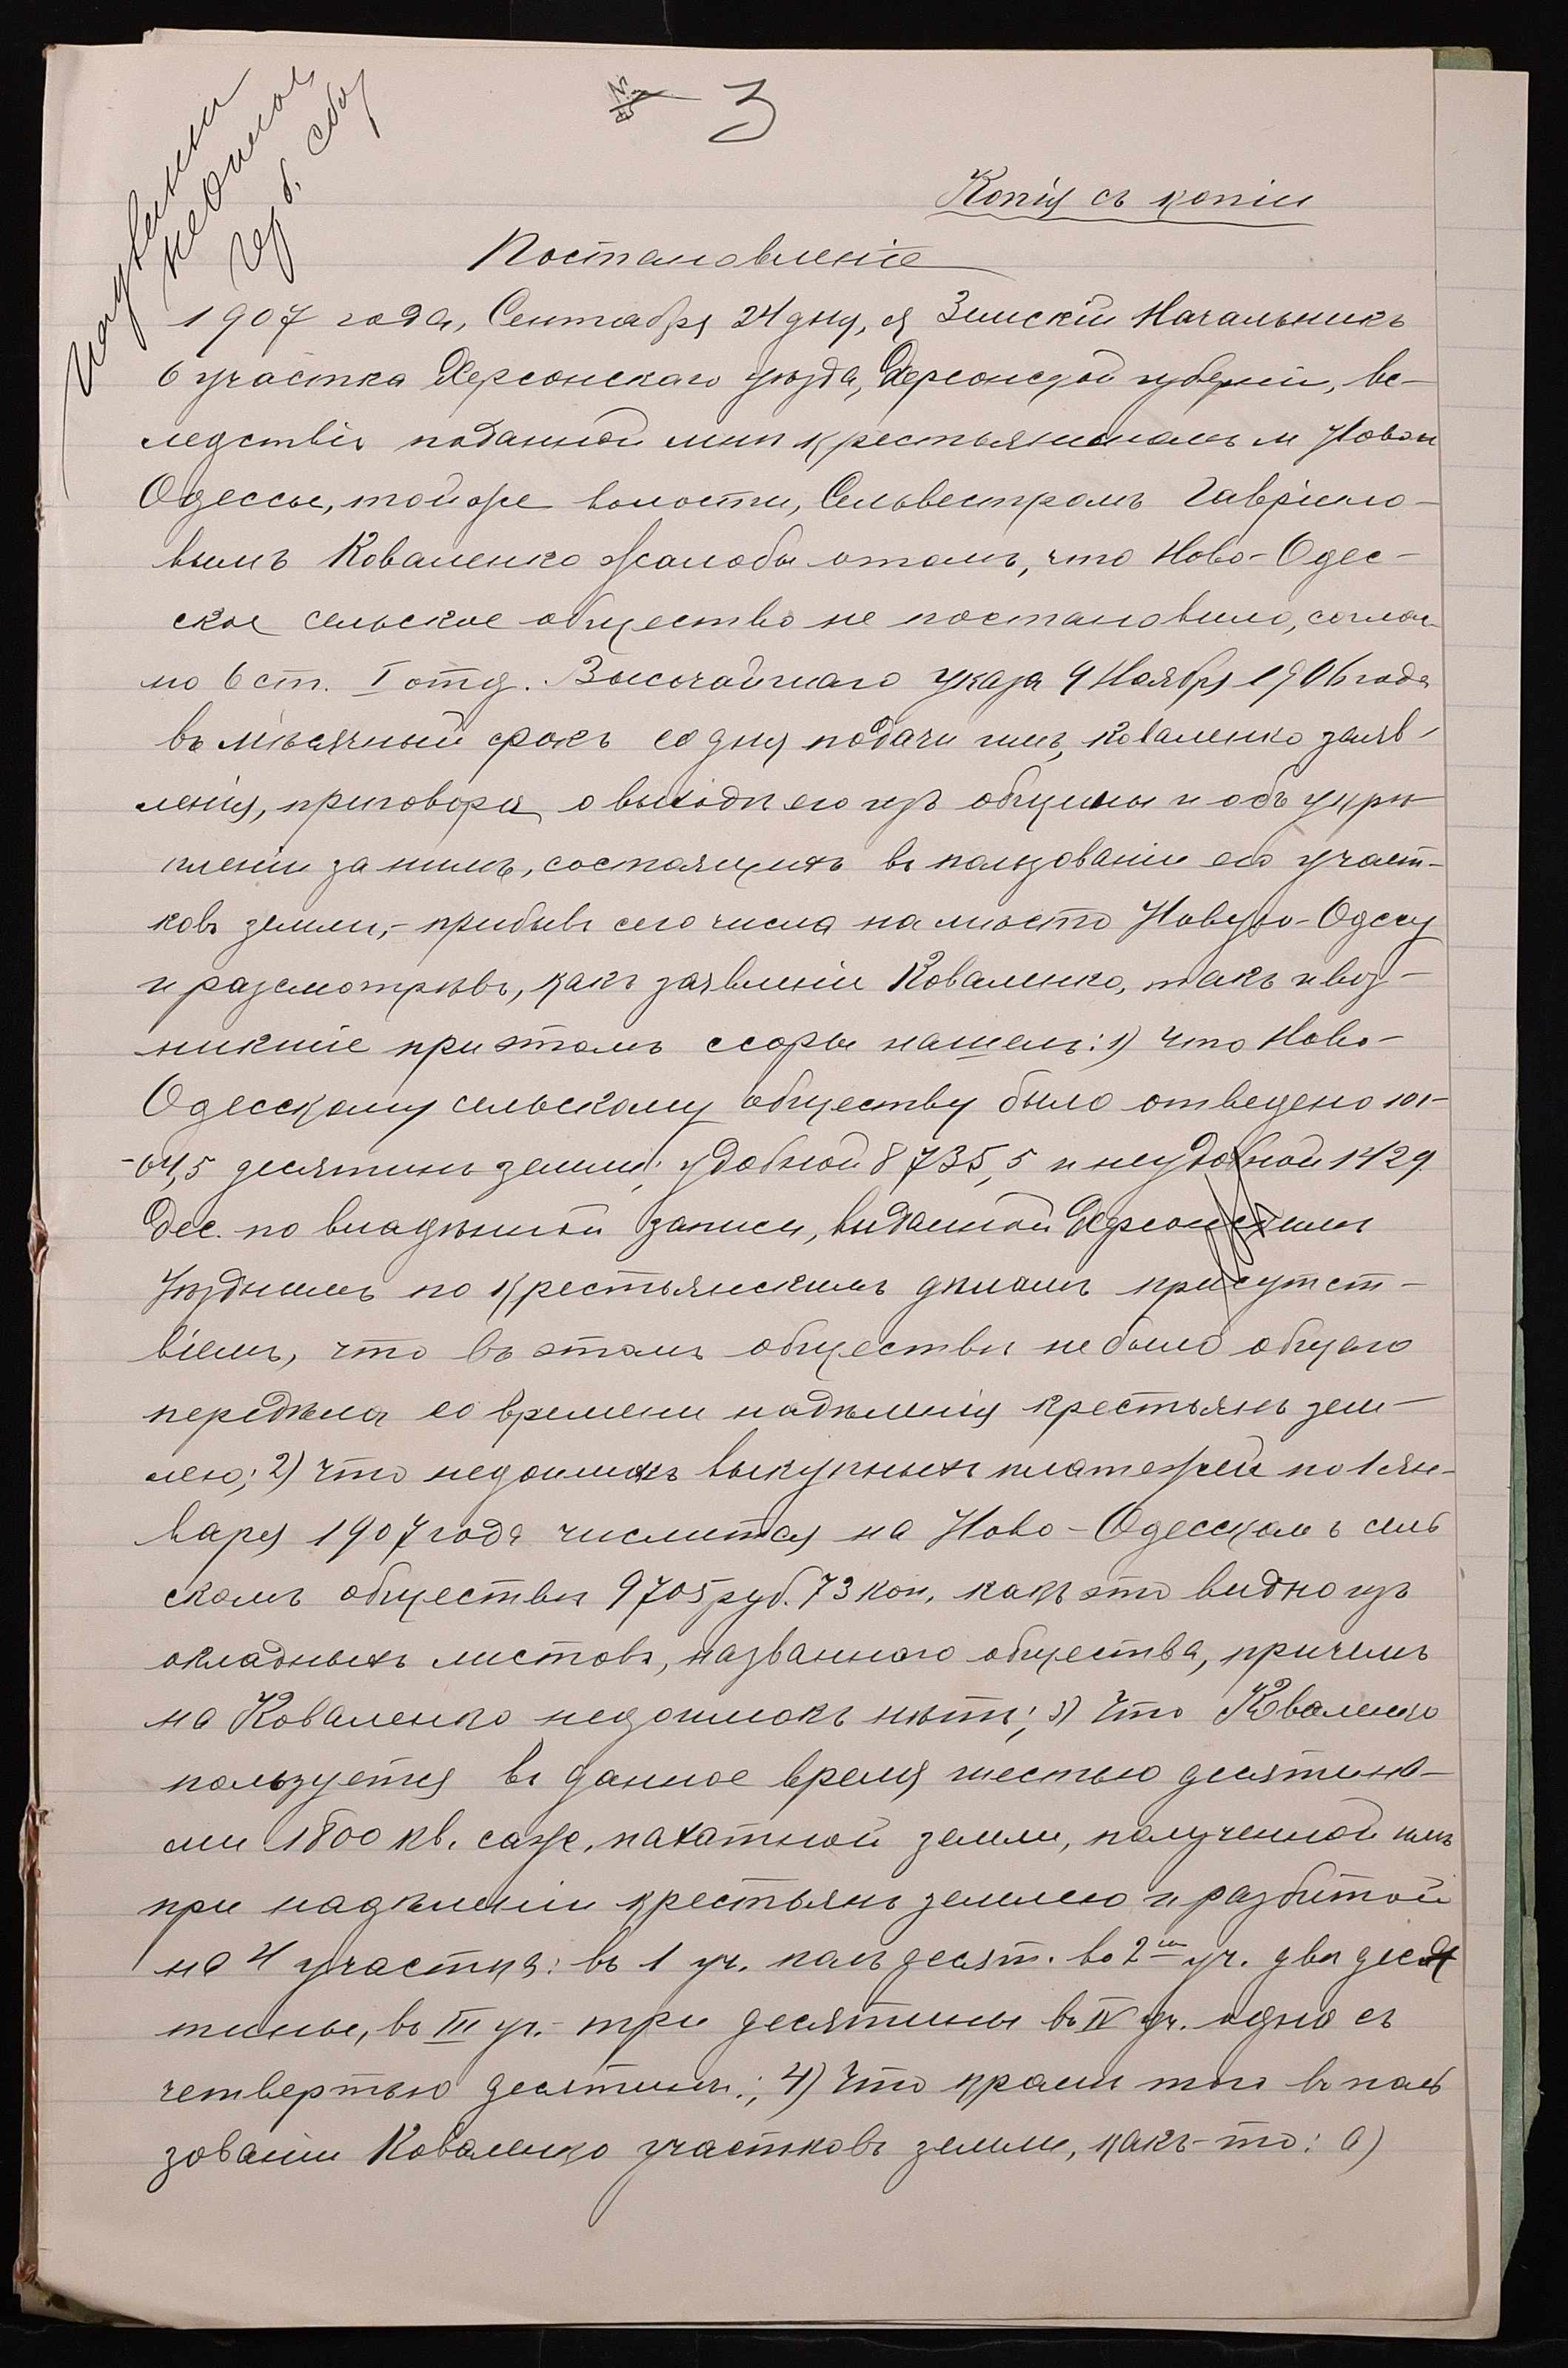 3
Копія съ копіи
Постановленіе
1907 года, Сентября 24 дня, я Земскій Начальникъ
6 участка Херсонскаго уѣзда, Херсонской губерніи, вс-
ледствіе поданной мнѣ крестьяниномъ м Новой
Одессы, той же волости, Сельвестромъ Гаврило-
вымъ Коваленко жалобы отомъ, что Ново-Одес-
ское сельское общество не постановило, соглас
но 6 ст. I отд. Высочайшаго указа 9 Ноября 1906 года
въ мѣсячный срокъ со дня подачи имъ, Коваленко заяв-
ленія, приговора о выходѣ его изъ общины и объ укрѣ
пленіи за нимъ, состоящихъ въ пользованіи его участ-
ковъ земли,- прибывъ сего числа на мѣсто Новую-Одесу
и разсмотрѣвъ, какъ заявленіе Коваленко, такъ и воз-
никшіе при этомъ споры нашелъ: 1) Что Ново-
Одесскому сельскому обществу было отведено 101-
-64,5 десятинъ земли; удобной 8735,5 и неудобной 1429
дес. по владѣнной записи, выданной Херсонскимъ
Уѣзднымъ по крестьянскимъ дѣламъ присутст-
віемъ, что въ этомъ обществѣ не было общаго
передѣла со времени надѣленія крестьянъ зем-
лею; 2) Что недоимокъ выкупныхъ платежей по 1 Ян-
варя 1907 года числится на Ново-Одесскомъ сель
скомъ обществѣ 9705 руб. 73 коп, какъ это видно изъ
окладныхъ листовъ, названнаго общества, причемъ
на Коваленко недоимокъ нѣтъ; 3) Что Коваленко
пользуется въ данное время шестью десятина-
ми 1800 кв. саж. пахатной земли, полученной имъ
при надѣленіи крестьянъ землею и разбитой
на 4 участка: въ 1 уч. полъ десят. во 2мъ уч. двѣ деся
тины, въ III уч.- три десятины въ IV уч. одна съ
четвертью десятины; 4) Что кромѣ того въ поль
зованіи Коваленко участковъ земли, какъ-то: а)